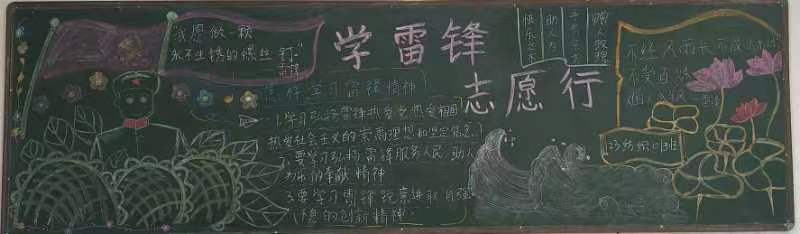 我愿做一颗
永不生锈的螺丝钉"
雷锋
学雷锋
志愿行
赠人玫瑰
手有余香
助人为
快乐之本
怎样学习雷锋精神
1.学习弘扬雷锋热爱党热爱祖国
热爱社会主义的崇高理想和坚定信念.
2.要学习弘扬雷锋服务人民 助人
为乐的奉献精神
3.要学习雷锋锐意进取 自强
的创新精神.
不经风雨长不成大树
不受百炼